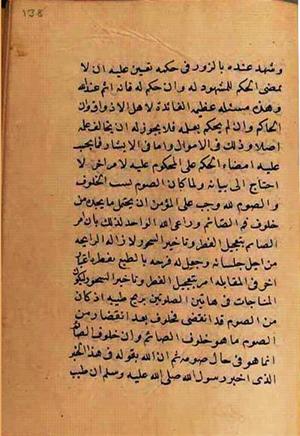 ١٣٨
وشهد عنده بالزور في حكمه تعين عليه ان لا
يمضي الحكم للمشهود له وان حكم له فانه اثم عند الله
وهذه مسئلة عظيمة الفائدة لاهل الاذواق وان
الحاكم وان لم يحكم بعلمه فلا يجوز له ان يخالف علمه
اصلا وذلك في الاموال واما في الابشار فيجب
عليه امضاء الحكم على المحكوم عليه لا
احتاج الى بيانه ولما كان الصوم سبب الخلوف
والصوم لله وجب على المؤمن ان يحتمل ما يجده من
خلوف فم الصائم وراعى الله الواحد لذلك بان امر
الصائم بتعجيل الفطر وتاخير السحور لازالة الرائحة
من اجل جلسائه وجعل له فرحة بالطبع بفطره
اخر في المقابلة امر بتعجيل الفطر وتاخير السحور لتكون
المناجات في هاتين الصلوتين بريح طيبة اذ كان
من الصوم قد انقضى فخلوف بعد انقضاء زمن
الصوم ما هو خلوف الصائم وان خلوف الصائم
انما هو في حال صومه ثم ان الله بقوله في هذا الخبر
الذي اخبر رسول الله صلى الله عليه وسلم ان طيب